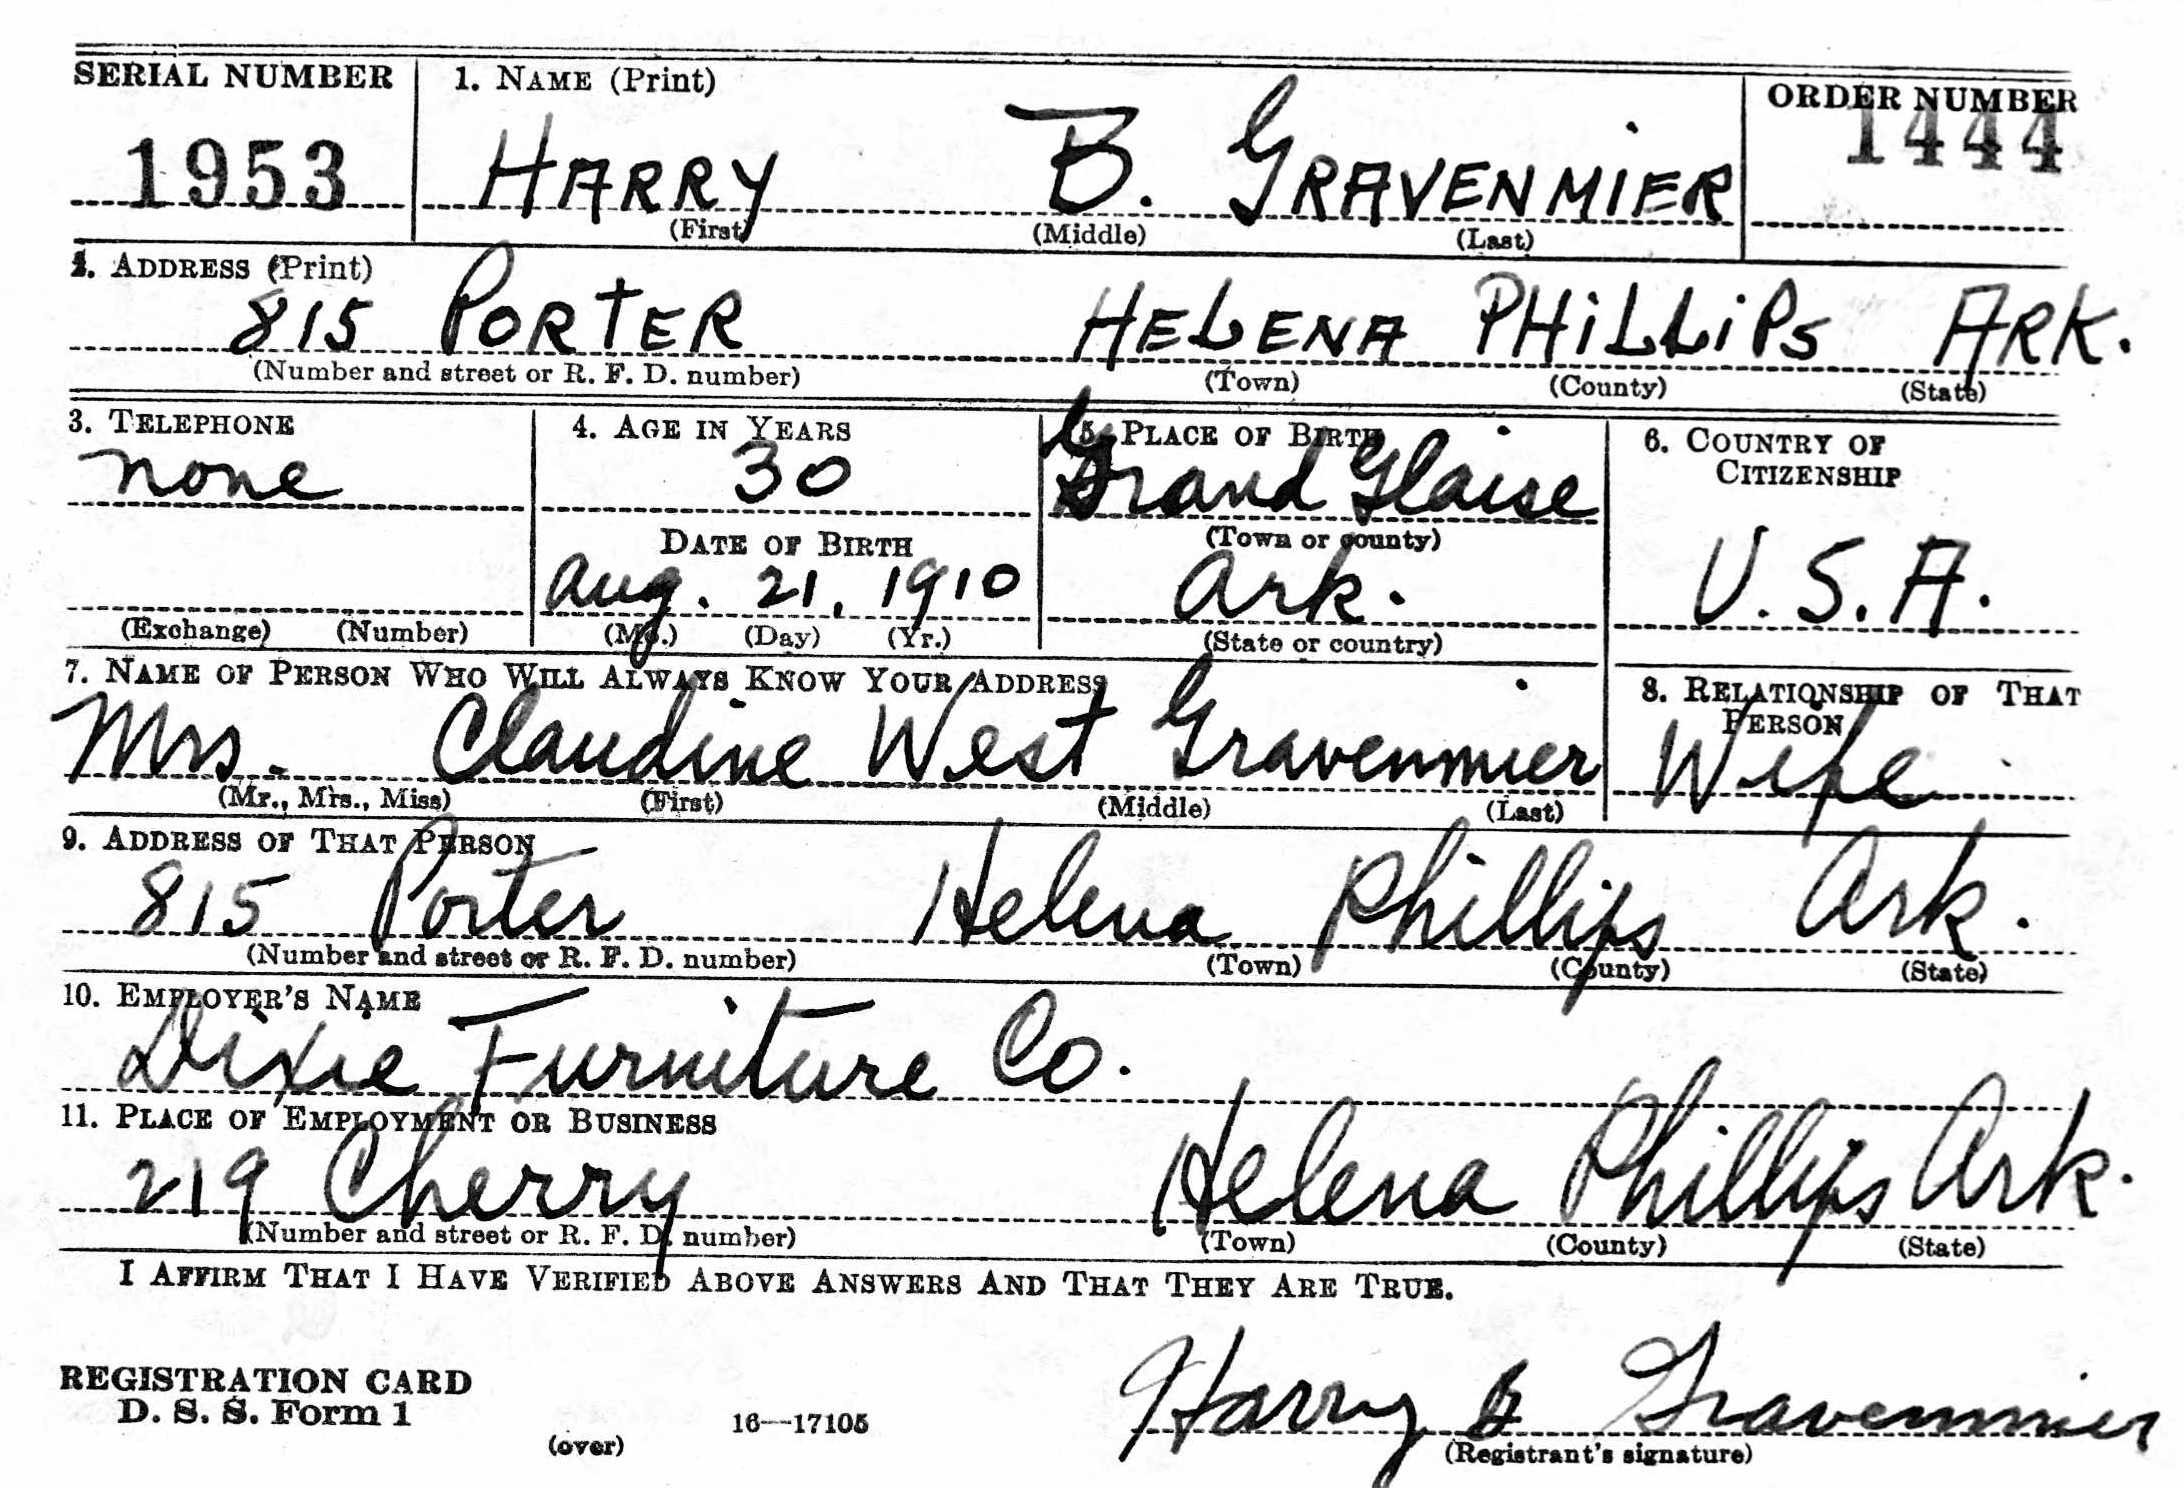 SERIAL NUMBER 1. NAME (Print) ORDER NUMBER
1953 HARRY B. GRAVENMIER 1444
(First) (Middle) (Last)
2. ADDRESS (Print)
815 PORTER HELENA PHILLIPS ARK.
(Number and street or R. F. D. number) (Town) (County) (State)
3. TELEPHONE 4. AGE IN YEARS 5. PLACE OF BIRTH 6. COUNTRY OF CITIZENSHIP
none 30 Grand Glaise
DATE OF BIRTH (Town or county)
Aug. 21, 1910 Ark. U.S.A.
(Exchange) (Number) (Mo.) (Day) (Yr.) (State or country)
7. NAME OF PERSON WHO WILL ALWAYS KNOW YOUR ADDRESS 8. RELATIONSHIP OF THAT PERSON
Mrs. Claudine West Gravenmier Wife
(Mr., Mrs., Miss) (First) (Middle) (Last)
9. ADDRESS OF THAT PERSON
815 Porter Helena Phillips Ark.
(Number and street or R. F. D. number) (Town) (County) (State)
10. EMPLOYER'S NAME
Dixie Furniture Co.
11. PLACE OF EMPLOYMENT OR BUSINESS
219 Cherry Helena Phillips Ark.
(Number and street or R. F. D. number) (Town) (County) (State)
I AFFIRM THAT I HAVE VERIFIED ABOVE ANSWERS AND THAT THEY ARE TRUE.
REGISTRATION CARD
D. S. S. Form 1 16—17105 Harry B Gravenmier
(over) (Registrant's signature)